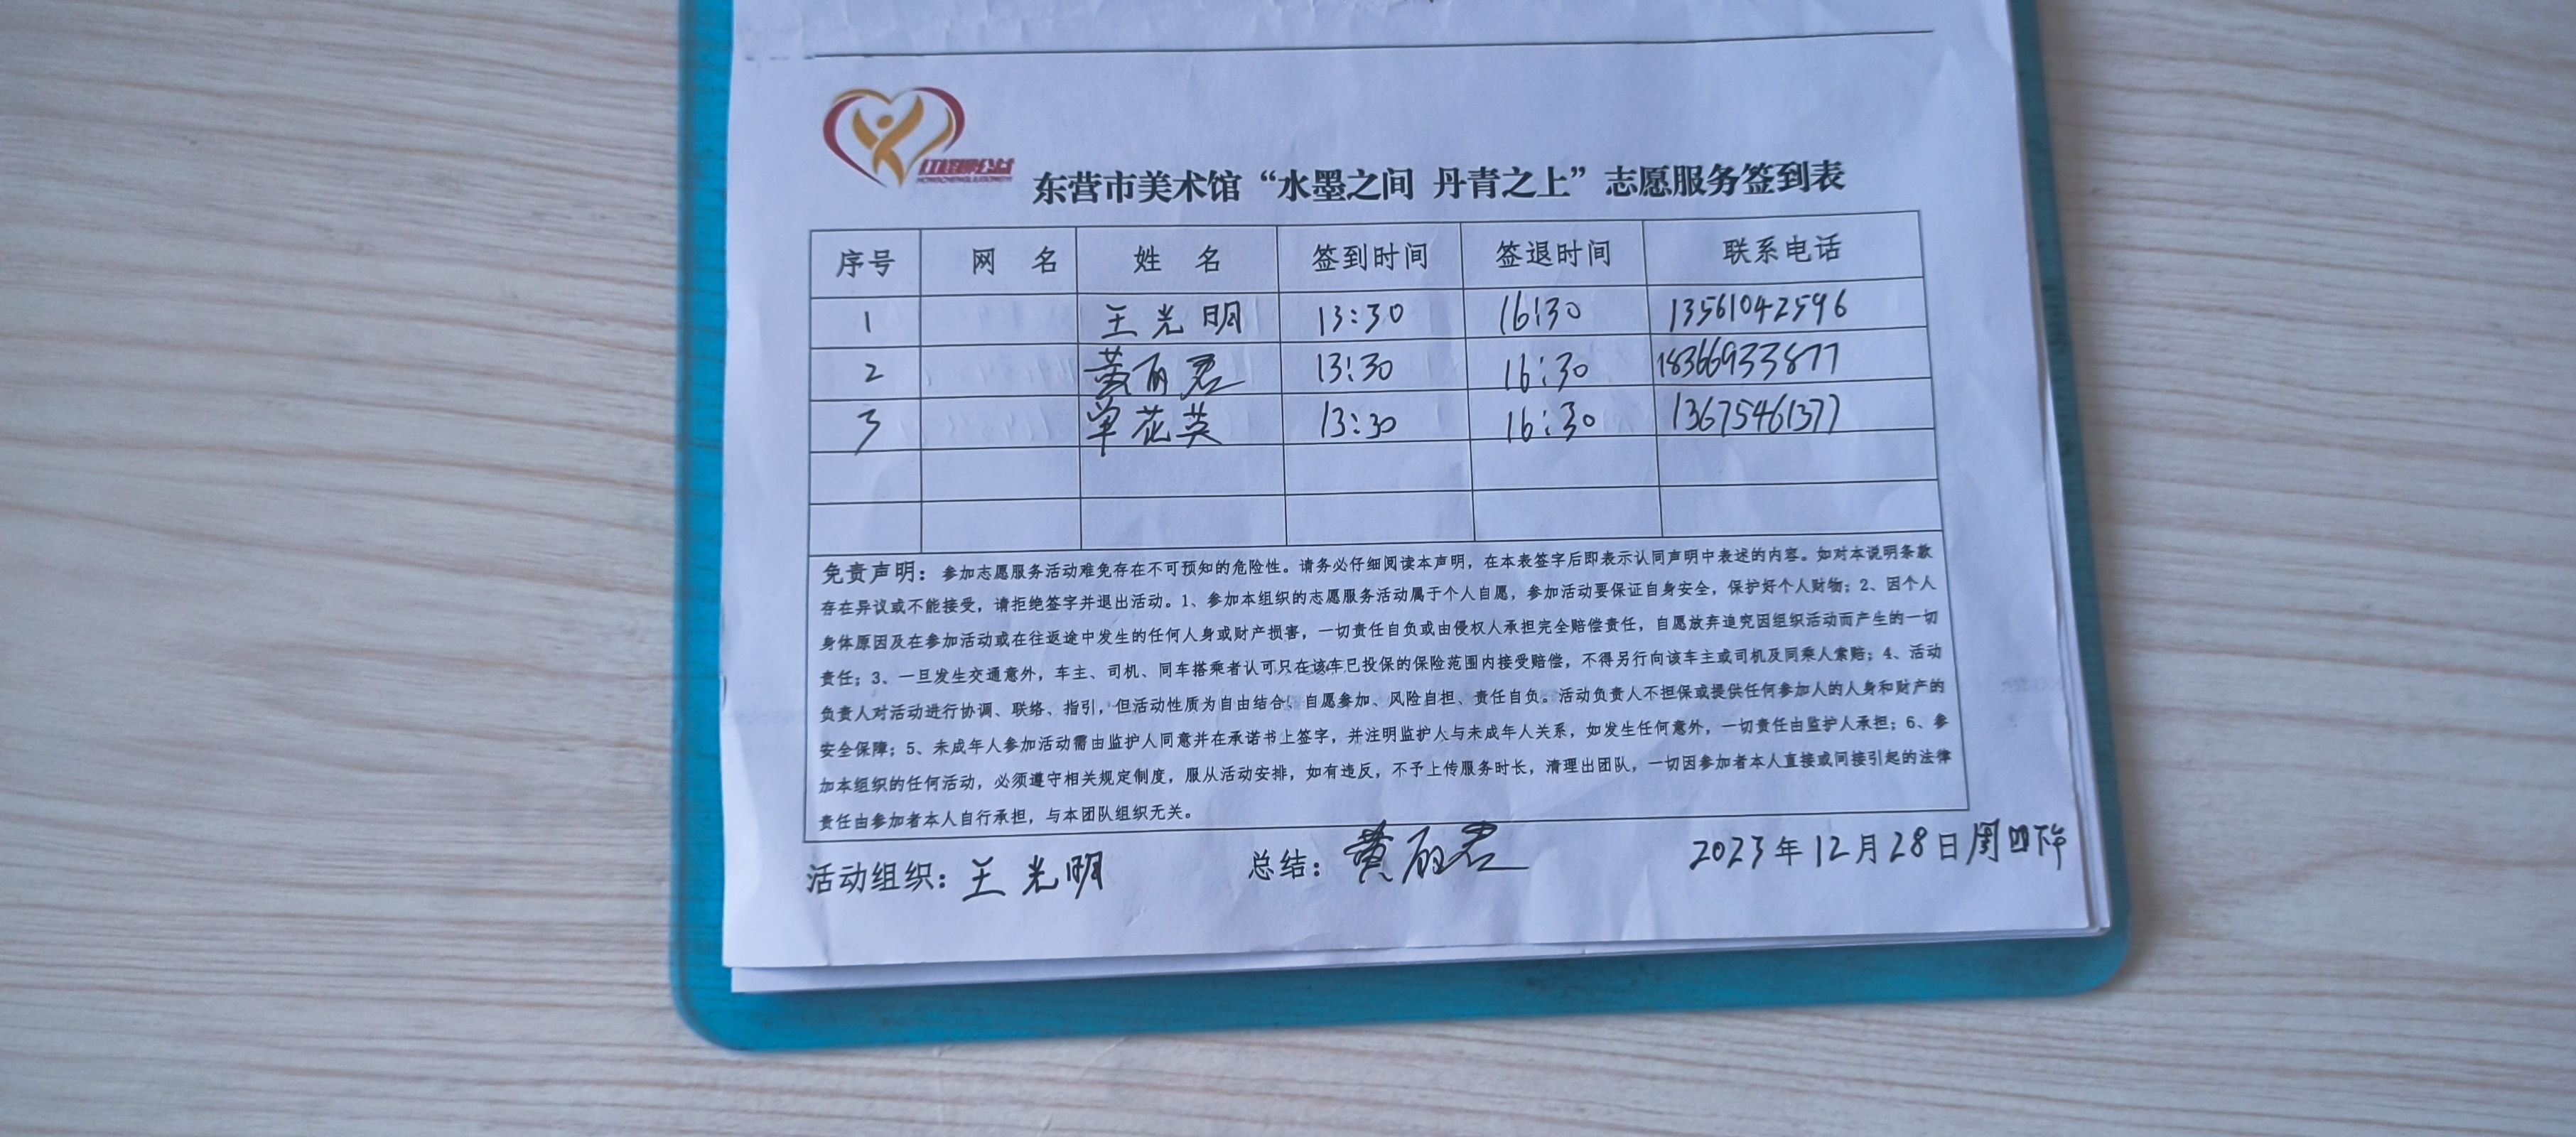 红橙柳公益
东营市美术馆“水墨之间 丹青之上”志愿服务签到表
序号 网 名 姓 名 签到时间 签退时间 联系电话
1 王光明 13:30 16:30 13561042596
2 黄丽君 13:30 16:30 18366933877
3 单花英 13:30 16:30 13675461377
免责声明：参加志愿服务活动难免存在不可预知的危险性。请务必仔细阅读本声明，在本表签字后即表示认同声明中表述的内容。如对本说明条款
存在异议或不能接受，请拒绝签字并退出活动。1、参加本组织的志愿服务活动属于个人自愿，参加活动要保证自身安全，保护好个人财物；2、因个人
身体原因及在参加活动或在往返途中发生的任何人身或财产损害，一切责任自负或由侵权人承担完全赔偿责任，自愿放弃追究因组织活动而产生的一切
责任；3、一旦发生交通意外，车主、司机、同车搭乘者认可只在该车已投保的保险范围内接受赔偿，不得另行向该车主或司机及同乘人索赔；4、活动
负责人对活动进行协调、联络、指引，但活动性质为自由结合、自愿参加、风险自担、责任自负。活动负责人不担保或提供任何参加人的人身和财产的
安全保障；5、未成年人参加活动需由监护人同意并在承诺书上签字，并注明监护人与未成年人关系，如发生任何意外，一切责任由监护人承担；6、参
加本组织的任何活动，必须遵守相关规定制度，服从活动安排，如有违反，不予上传服务时长，清理出团队，一切因参加者本人直接或间接引起的法律
责任由参加者本人自行承担，与本团队组织无关。
活动组织：王光明 总结：黄丽君 2023年12月28日周四下午